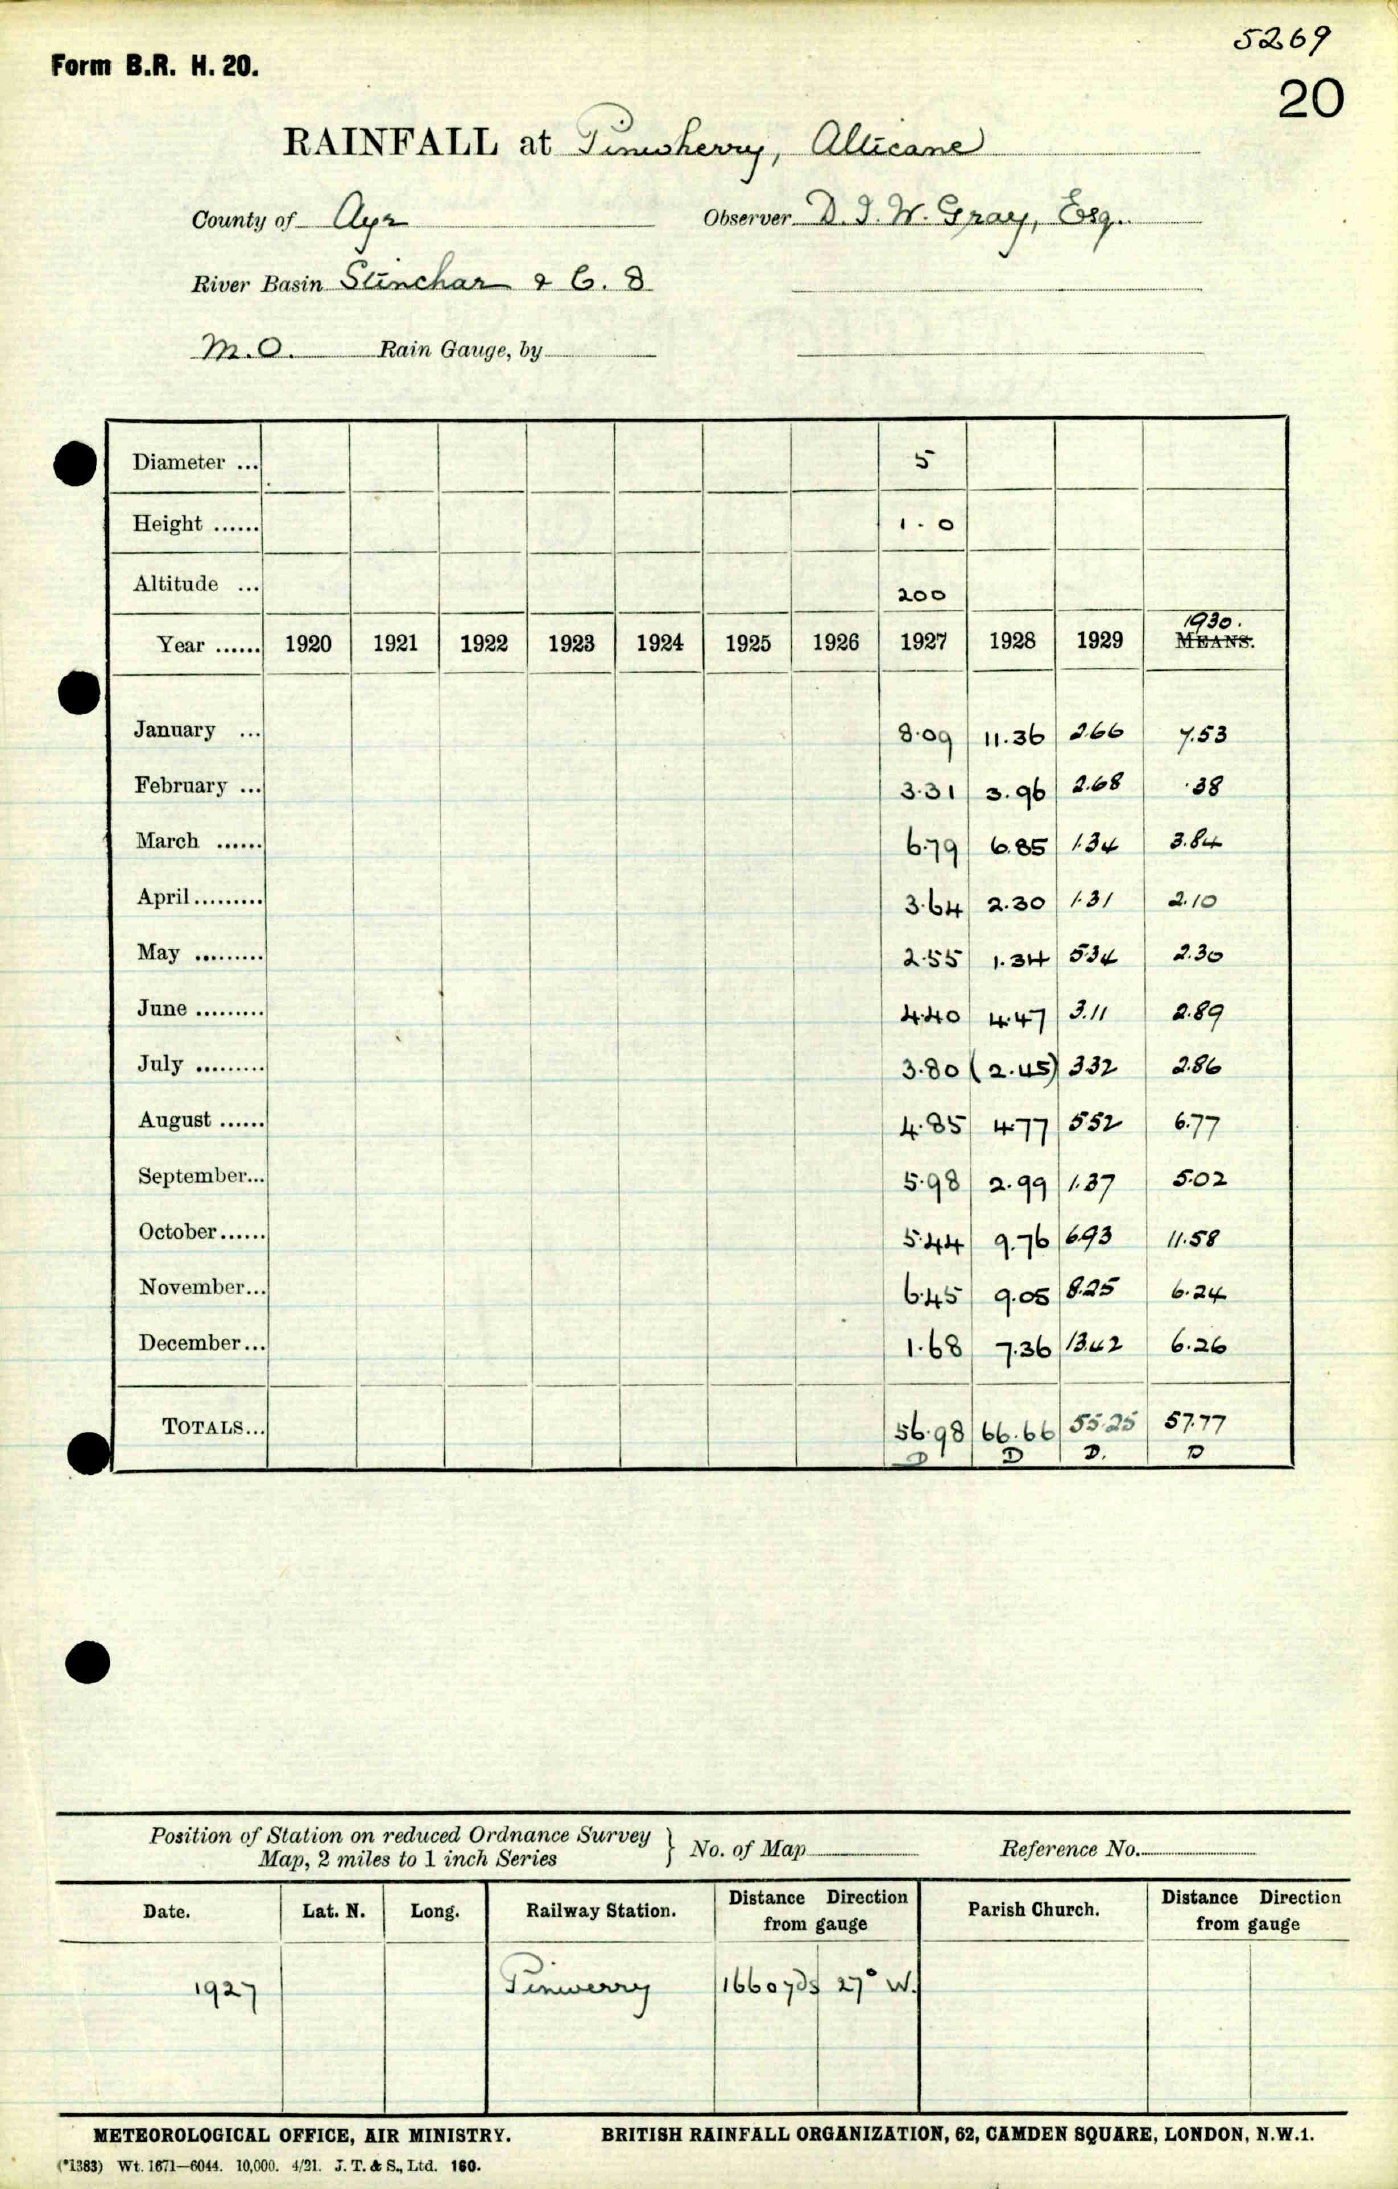 5269
Form B.R. H. 20.
20
RAINFALL at Pinwherry, Alticane
County of Ayr Observer D. I. W. Gray, Esq.
River Basin Stinchar & C. 8
M.O. Rain Gauge, by
Diameter ... 5
Height ...... 1 - 0
Altitude ... 200
1930.
Year ...... 1920 1921 1922 1923 1924 1925 1926 1927 1928 1929 MEANS.
January ... 8.09 11.36 2.66 7.53
February ... 3.31 3.96 2.68 .38
March ...... 6.79 6.85 1.34 3.84
April......... 3.64 2.30 1.31 2.10
May ......... 2.55 1.34 5.34 2.30
June ......... 4.40 4.47 3.11 2.89
July ......... 3.80 (2.45) 3.32 2.86
August ...... 4.85 4.77 5.52 6.77
September... 5.98 2.99 1.37 5.02
October...... 5.44 9.76 6.93 11.58
November... 6.45 9.05 8.25 6.24
December... 1.68 7.36 13.42 6.26
TOTALS... 56.98 66.66 55.25 57.77
D D D. D
Position of Station on reduced Ordnance Survey
Map, 2 miles to 1 inch Series } No. of Map Reference No.
Date. Lat. N. Long. Railway Station. Distance Direction from gauge Parish Church. Distance Direction from gauge
1927 Pinwerry 1660 yds 27° W.
METEOROLOGICAL OFFICE, AIR MINISTRY. BRITISH RAINFALL ORGANIZATION, 62, CAMDEN SQUARE, LONDON, N.W.1.
(*1383) Wt. 1671—6044. 10,000. 4/21. J. T. & S., Ltd. 160.